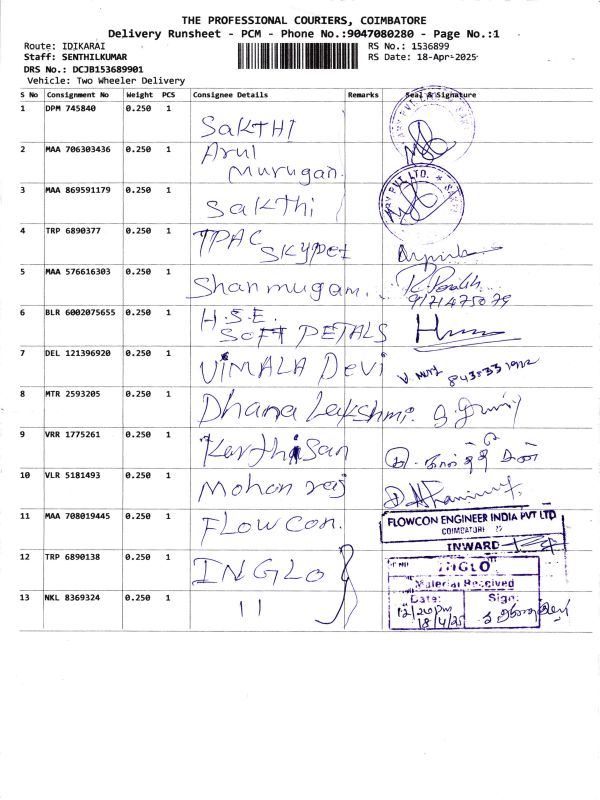 THE PROFESSIONAL COURIERS, COIMBATORE
Delivery Runsheet - PCM - Phone No.:9047080280 - Page No.:1
Route: IDIKARAI
RS No.: 1536899
Staff: SENTHILKUMAR
RS Date: 18-Apr-2025
DRS No.: DCJB153689901
Vehicle: Two Wheeler Delivery
S No Consignment No Weight PCS Consignee Details Remarks Seal & Signature
1 DPM 745840 0.250 1 SAKTHI
2 MAA 706303436 0.250 1 Arul
Murugan.
PVT LTD.
3 MAA 869591179 0.250 1 Sakthi
4 TRP 6890377 0.250 1 TPAC
SKYPET
5 MAA 576616303 0.250 1 Shanmugam.
6 BLR 6002075655 0.250 1 H.S.E.
SOFT PETALS
7 DEL 121396920 0.250 1 VIMALA Devi
8 MTR 2593205 0.250 1 Dhana Lakshmi.
9 VRR 1775261 0.250 1 Karthisan
10 VLR 5181493 0.250 1 Mohan raj
11 MAA 708019445 0.250 1 FLOWCON.
FLOWCON ENGINEER INDIA PVT LTD
COIMBATORE
INWARD
12 TRP 6890138 0.250 1 INGLO
"INGLO"
Material Received
13 NKL 8369324 0.250 1 11
Date: Sign:
12/20pm
18/4/25